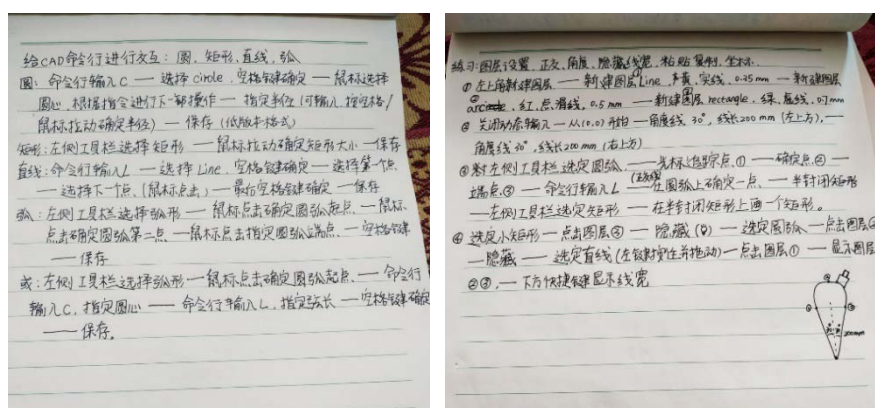 给CAD命令行进行交互：圆、矩形、直线、弧
圆：命令行输入C — 选择circle，空格键确定 — 鼠标选择
圆心，根据指令进行下一步操作 — 指定半径（可输入，按空格/
鼠标拉动确定半径）— 保存（低版本格式）
矩形：左侧工具栏选择矩形 — 鼠标拉动确定矩形大小 — 保存
直线：命令行输入L — 选择Line，空格键确定 — 选择第一个点
— 选择下一个点（鼠标点击）— 最后空格键确定 — 保存
弧：左侧工具栏选择弧形 — 鼠标点击确定圆弧起点 — 鼠标
点击确定圆弧第二点 — 鼠标点击指定圆弧端点 — 空格键
— 保存
或：左侧工具栏选择弧形 — 鼠标点击确定圆弧起点 — 命令行
输入C，指定圆心 — 命令行输入L，指定弦长 — 空格键确定
— 保存。
练习：图层设置，正交，角度，隐藏线宽，粘贴复制，坐标
① 左上角新建图层 — 新建图层①Line，黄，实线，0.35mm — 新建图层
②arc，红，点滑线，0.5mm — 新建图层③rectangle，绿，虚线，0.7mm
② 关闭动态输入 — 从(0,0)开始 — 角度线30°，线长200mm（左上方），—
角度线30°，线长200mm（右上方）
③ 左侧工具栏选定圆弧 — 光标追踪点① — 确定点② —
端点③ — 命令行输入L — 在圆弧上确定一点 — 半封闭矩形
— 左侧工具栏选定矩形 — 在半封闭矩形上画一个矩形。
④ 选定小矩形 — 点击图层③ — 隐藏 — 选定圆弧 — 点击图层②
— 隐藏 — 选定直线（左键按住并拖动）— 点击图层① — 显示图层
②③，— 下方快捷键显示线宽